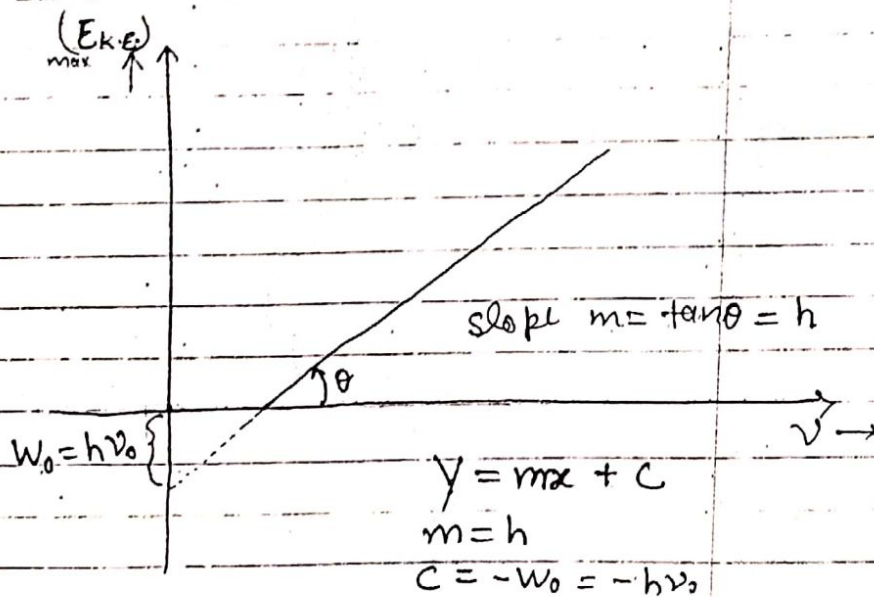 (E K.E.)
max
slope m = tanθ = h
θ
ν →
W₀ = hν₀ {
y = mx + c
m = h
c = -W₀ = -hν₀